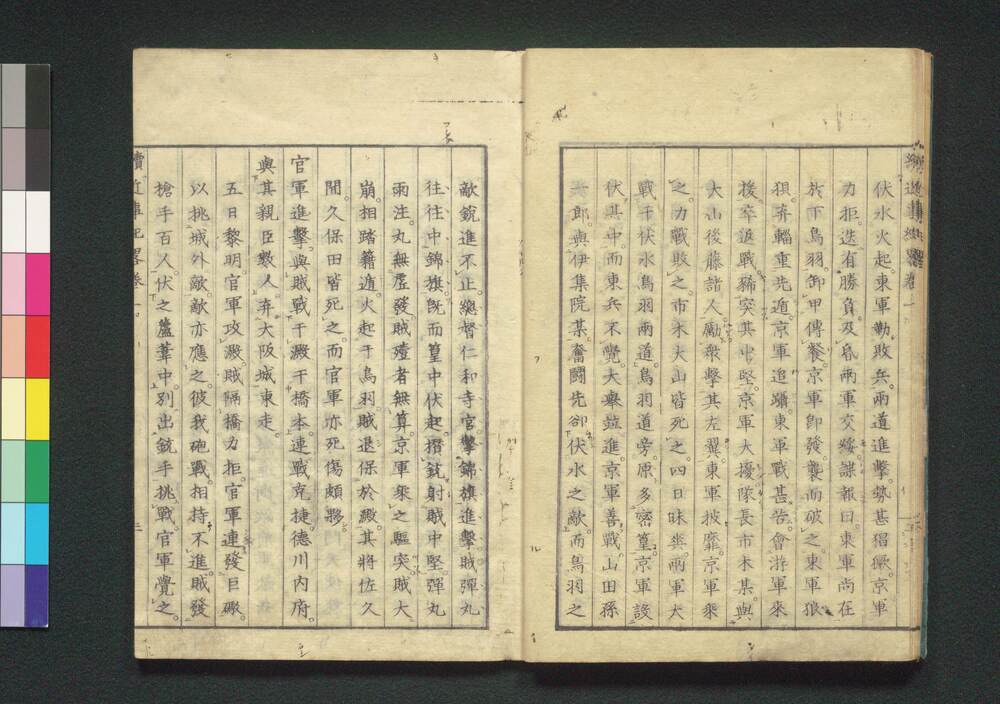 續近事紀略卷一
伏水火起東軍勒敗兵兩道進擊勢甚猖獗京軍
力拒迭有勝負及昏兩軍交綏諜報曰東軍尚在
於下鳥羽卸甲傳餐京軍卽發襲而破之東軍狼
狽弃輜重先遁京軍追躡東軍戰甚苦會游軍來
援卒返戰豨突其中堅京軍大擾隊長市來某與
大山後藤諸人勵衆擊其左翼東軍披靡京軍乘
之力戰敗之市來大山皆死之四日昧爽兩軍大
戰于伏水鳥羽兩道鳥羽道旁原多密篁京軍設
伏其中而東兵不覺大擧竝進京軍善戰山田孫
郎與伊集院某奮鬪先卻伏水之敵而鳥羽之
敵銳進不止總督仁和寺官擎錦旗進擊賊彈丸
往往中錦旗旣而篁中伏起攢銃射賊中堅彈丸
雨注丸無虛發賊殪者無算京軍乘之驅突賊大
崩相踏籍遁火起于鳥羽賊退保於澱其將佐久
間久保田皆死之而官軍亦死傷頗夥
官軍進擊與賊戰于澱于橋本連戰克捷德川内府
與其親臣數人弃大阪城東走
五日黎明官軍攻澱賊隔橋力拒官軍連發巨礮
以挑城外敵敵亦應之彼我砲戰相持不進賊發
槍手百人伏之蘆葦中別出銃手挑戰官軍覺之
續近事紀略卷一
三